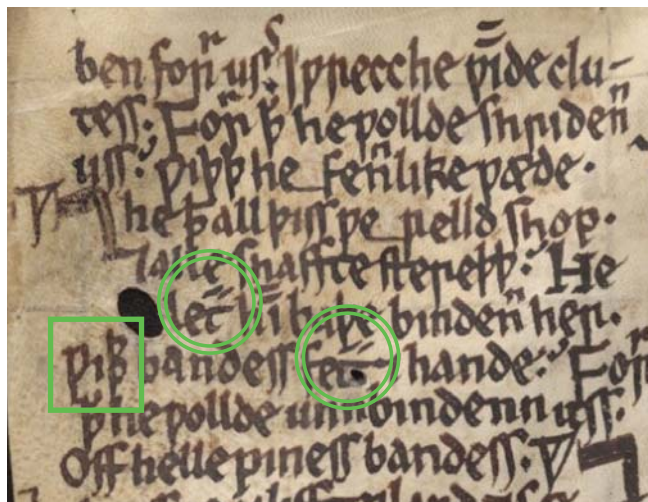 ben forr uss. I ƿrecche ƿīde clu-
tess; Forr þ̄ he ƿollde shridenn
uss; ƿiþþ heffennlike ƿæde.
he þ̄ all þiss ƿerelld shop.
⁊ alle shaffte stereþþ; He
let bindenn her.
ƿiþþ bandess fet ⁊ hande; Forr
þ̄ he ƿollde unnbindenn uss.
Off helle piness bandess.